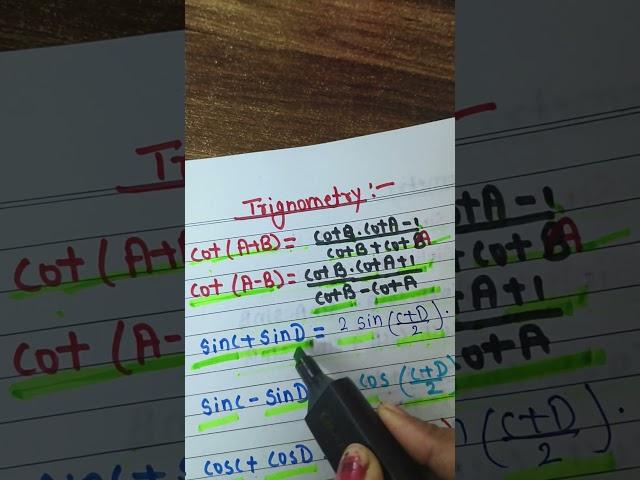 Trignometry:-
cot (A+B) = cotB.cotA-1 / cotB+cotA
cot (A-B) = cotB.cotA+1 / cotB-cotA
sinC + sinD = 2 sin (C+D / 2).
sinC - sinD cos (C+D / 2)
cosC + cosD